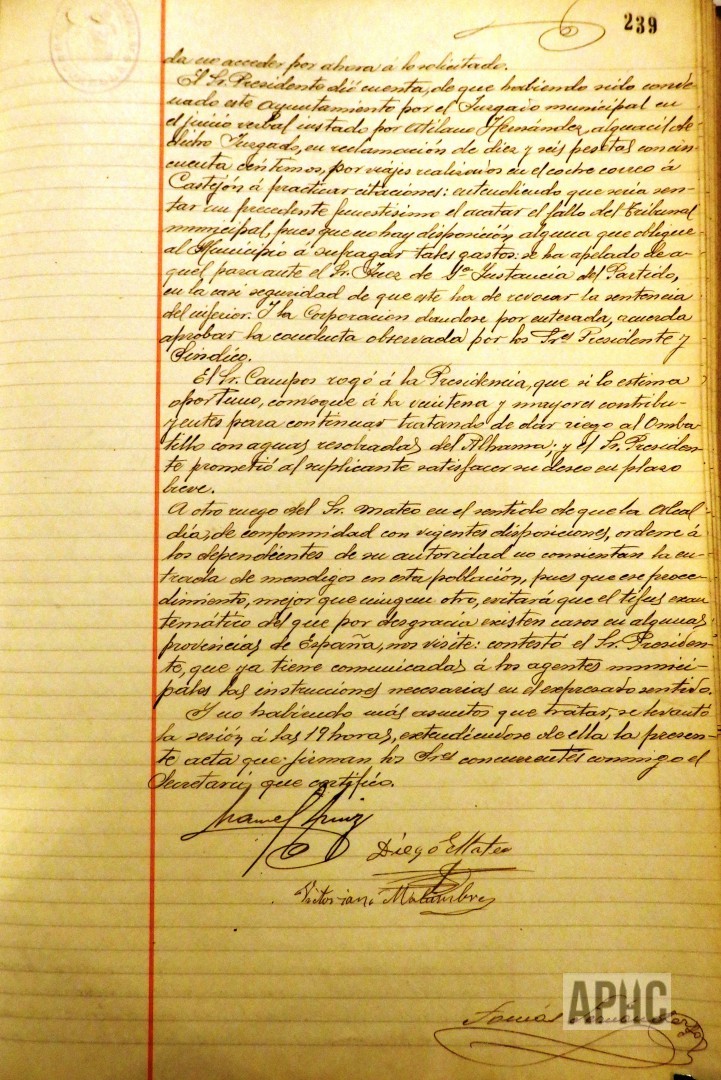 239
da no acceder por ahora á lo solicitado.
El Sr. Presidente dió cuenta, de que habiendo sido conde-
nado este Ayuntamiento por el Juzgado municipal en
el juicio verbal instado por Atilano Hernández, alguacil de
dicho Juzgado, en reclamación de diez y seis pesetas con cin-
cuenta céntimos, por viajes realizados en el coche correo á
Castejón á practicar citaciones: entendiendo que seria sen-
tar un precedente funestisimo el acatar el fallo del Tribunal
municipal, pues que no hay disposición alguna que obligue
al Municipio á sufragar tales gastos: se ha apelado de a-
quel para ante el Sr. Juez de 1ª Instancia del Partido,
en la casi seguridad de que este ha de revocar la sentencia
del inferior. Y la Corporacion dandose por enterada, acuerda
aprobar la conducta observada por los Sres Presidente y
Sindico.
El Sr. Campos rogó á la Presidencia, que si lo estima
oportuno, convoque á la veintena y mayores contribu-
yentes para continuar tratando de dar riego al Omba-
tillo con aguas resobradas del Alhama; y el Sr. Presiden-
te prometió al suplicante satisfacer su deseo en plazo
breve.
A otro ruego del Sr. Mateo en el sentido de que la Alcal-
día, de conformidad con vigentes disposiciones, ordene á
los dependientes de su autoridad no consientan la en-
trada de mendigos en esta población, pues que ese proce-
dimiento, mejor que ningun otro, evitará que el tifus exan-
temático del que por desgracia existen casos en algunas
provincias de España, nos visite: contestó el Sr. Presiden-
te, que ya tiene comunicadas á los agentes munici-
pales las instrucciones necesarias en el expresado sentido.
Y no habiendo más asuntos que tratar, se levantó
la sesión á las 19 horas, extendiendose de ella la presen-
te acta que firman los Sres concurrentes conmigo el
Secretario que certifico.
Manuel
Diego Mateo
Victoriano Malumbres
APHC
Tomás